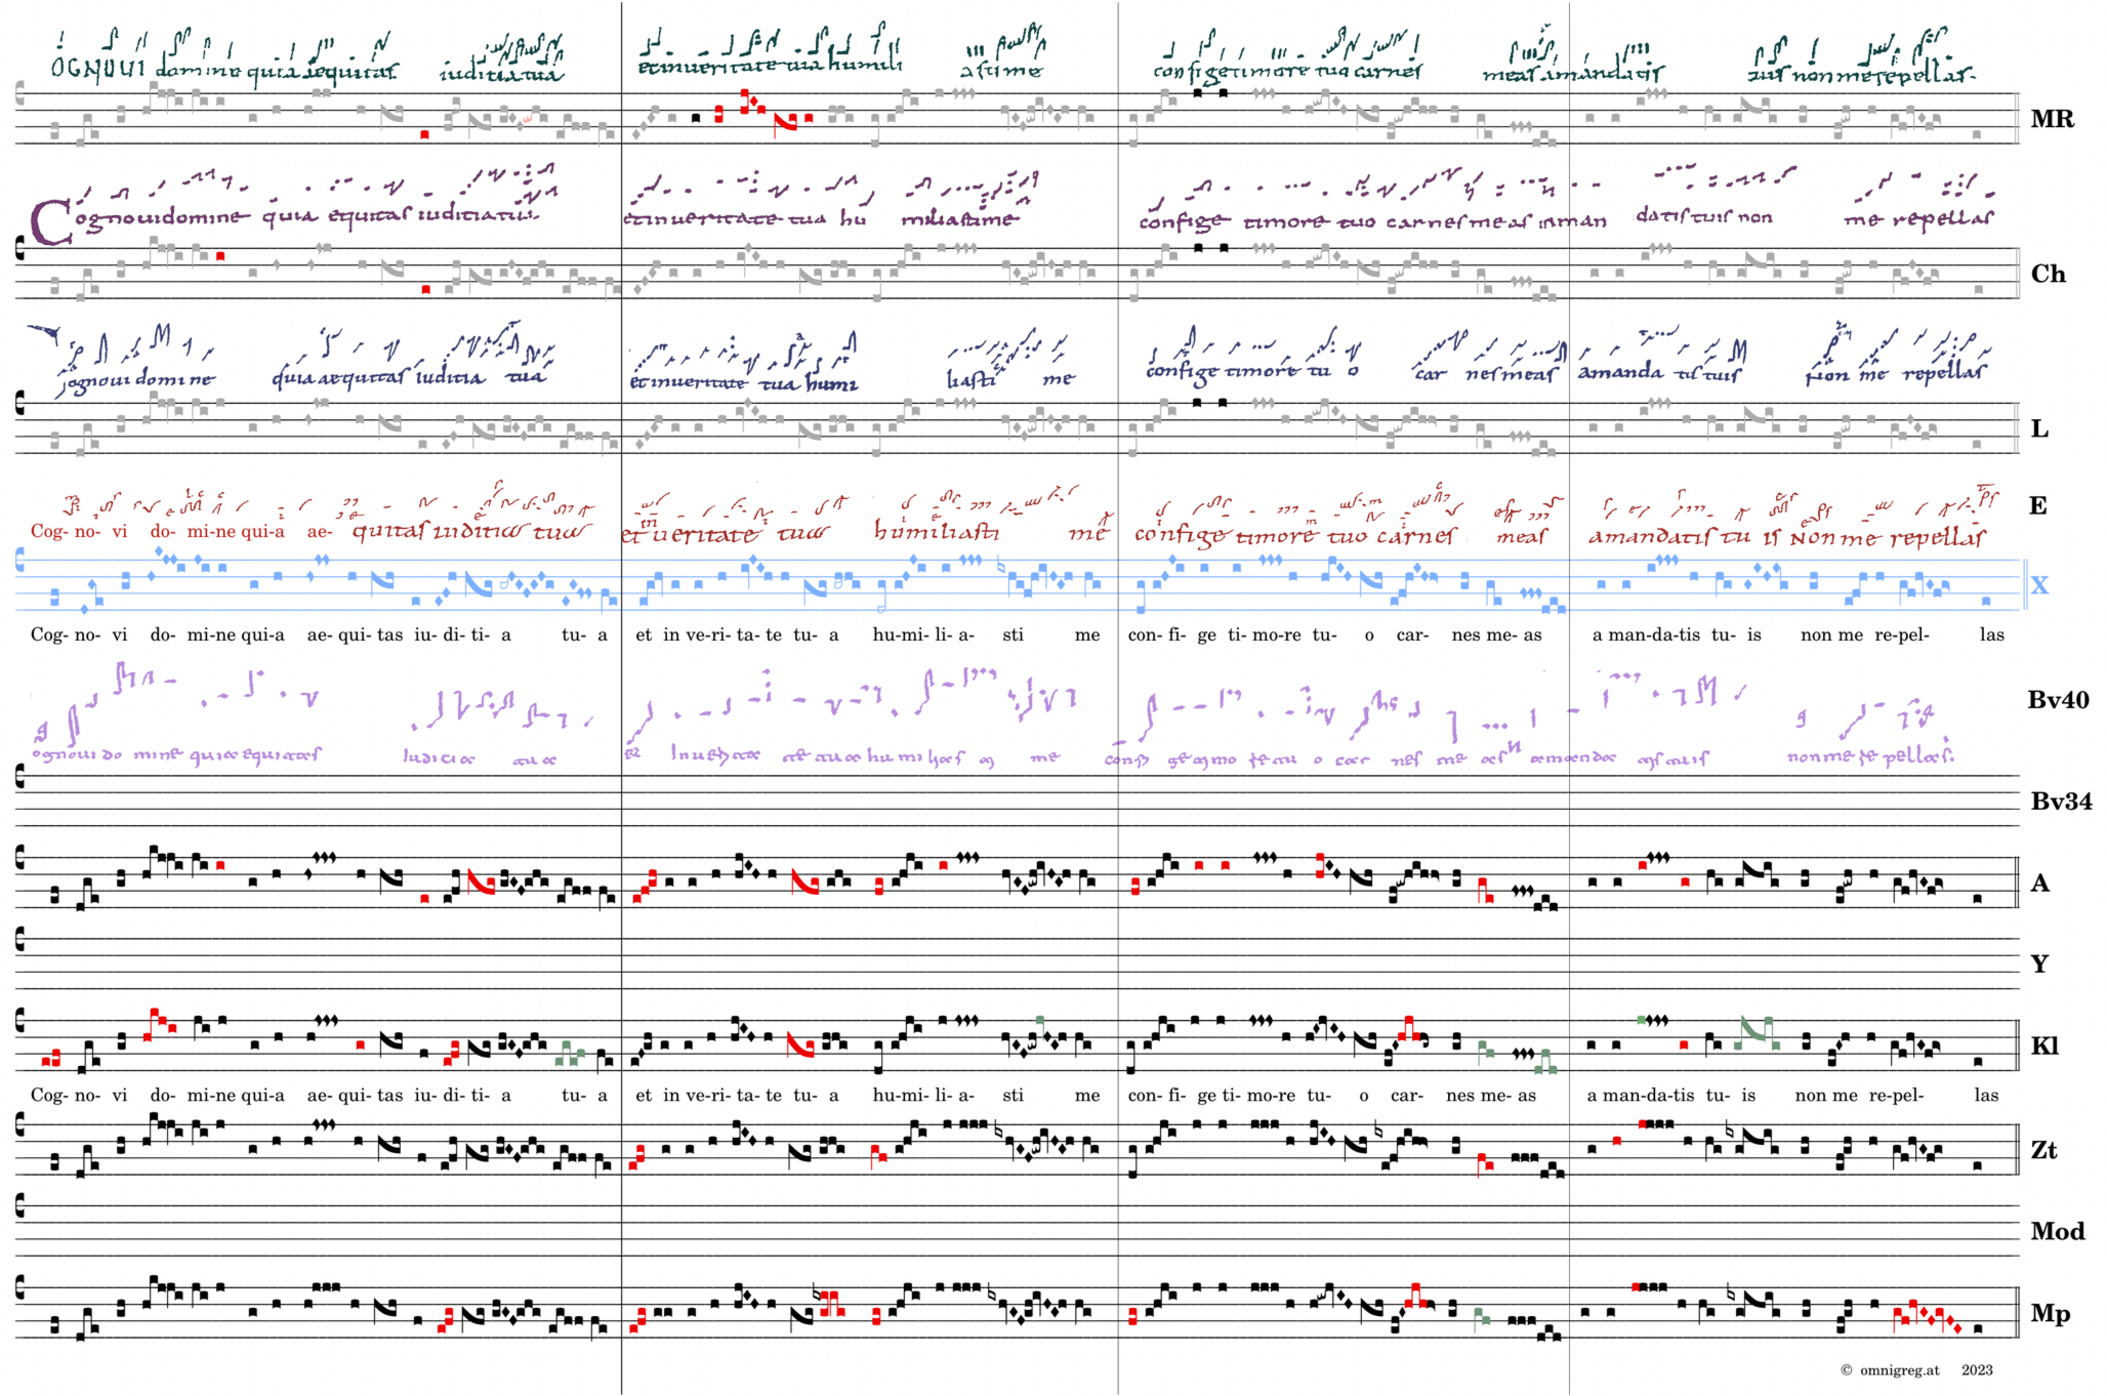 OGNOUI domine quia aequitas iuditia tua et in ueritate tua humili asti me configetimore tuo carnes meas amandatis tuis non me repellas.
MR
Cognoui domine quia equitas iuditia tua et in ueritate tua hu miliasti me configetimore tuo carnes meas in man datis tuis non me repellas
Ch
ognoui domine quia aequitas iuditia tua et in ueritate tua humi liasti me configetimore tu o car nes meas amanda tis tuis non me repellas
L
Cog- no- vi do- mi-ne qui-a ae- quitas iuditia tua et in ueritate tua humiliasti me configetimore tuo carnes meas amandatis tu is non me repellas
E
X
Cog- no- vi do- mi-ne qui-a ae- qui- tas iu- di- ti- a tu- a et in ve-ri- ta- te tu- a hu-mi- li- a- sti me con- fi- ge ti-mo-re tu- o car- nes me- as a man-da-tis tu- is non me re-pel- las
Bv40
ognoui do mine quia equitas iudicia tua me o car nes me non me re pellas.
Bv34
A
Y
Kl
Cog- no- vi do- mi-ne qui-a ae- qui- tas iu- di- ti- a tu- a et in ve-ri- ta- te tu- a hu-mi- li- a- sti me con- fi- ge ti-mo-re tu- o car- nes me- as a man-da-tis tu- is non me re-pel- las
Zt
Mod
Mp
© omnigreg.at 2023